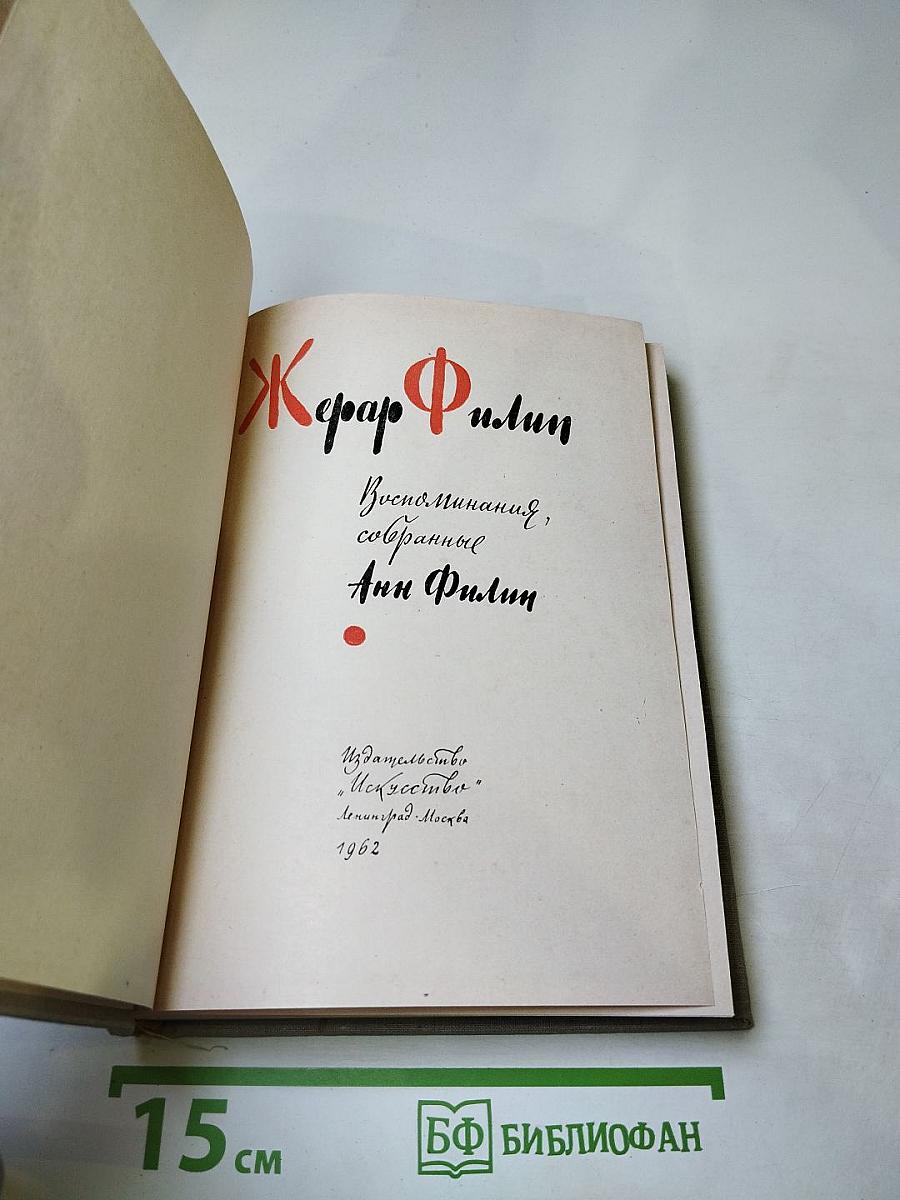 Жерар Филип
Воспоминания,
собранные
Анн Филип
Издательство
„Искусство"
Ленинград·Москва
1962
15 см
БФ БИБЛИОФАН